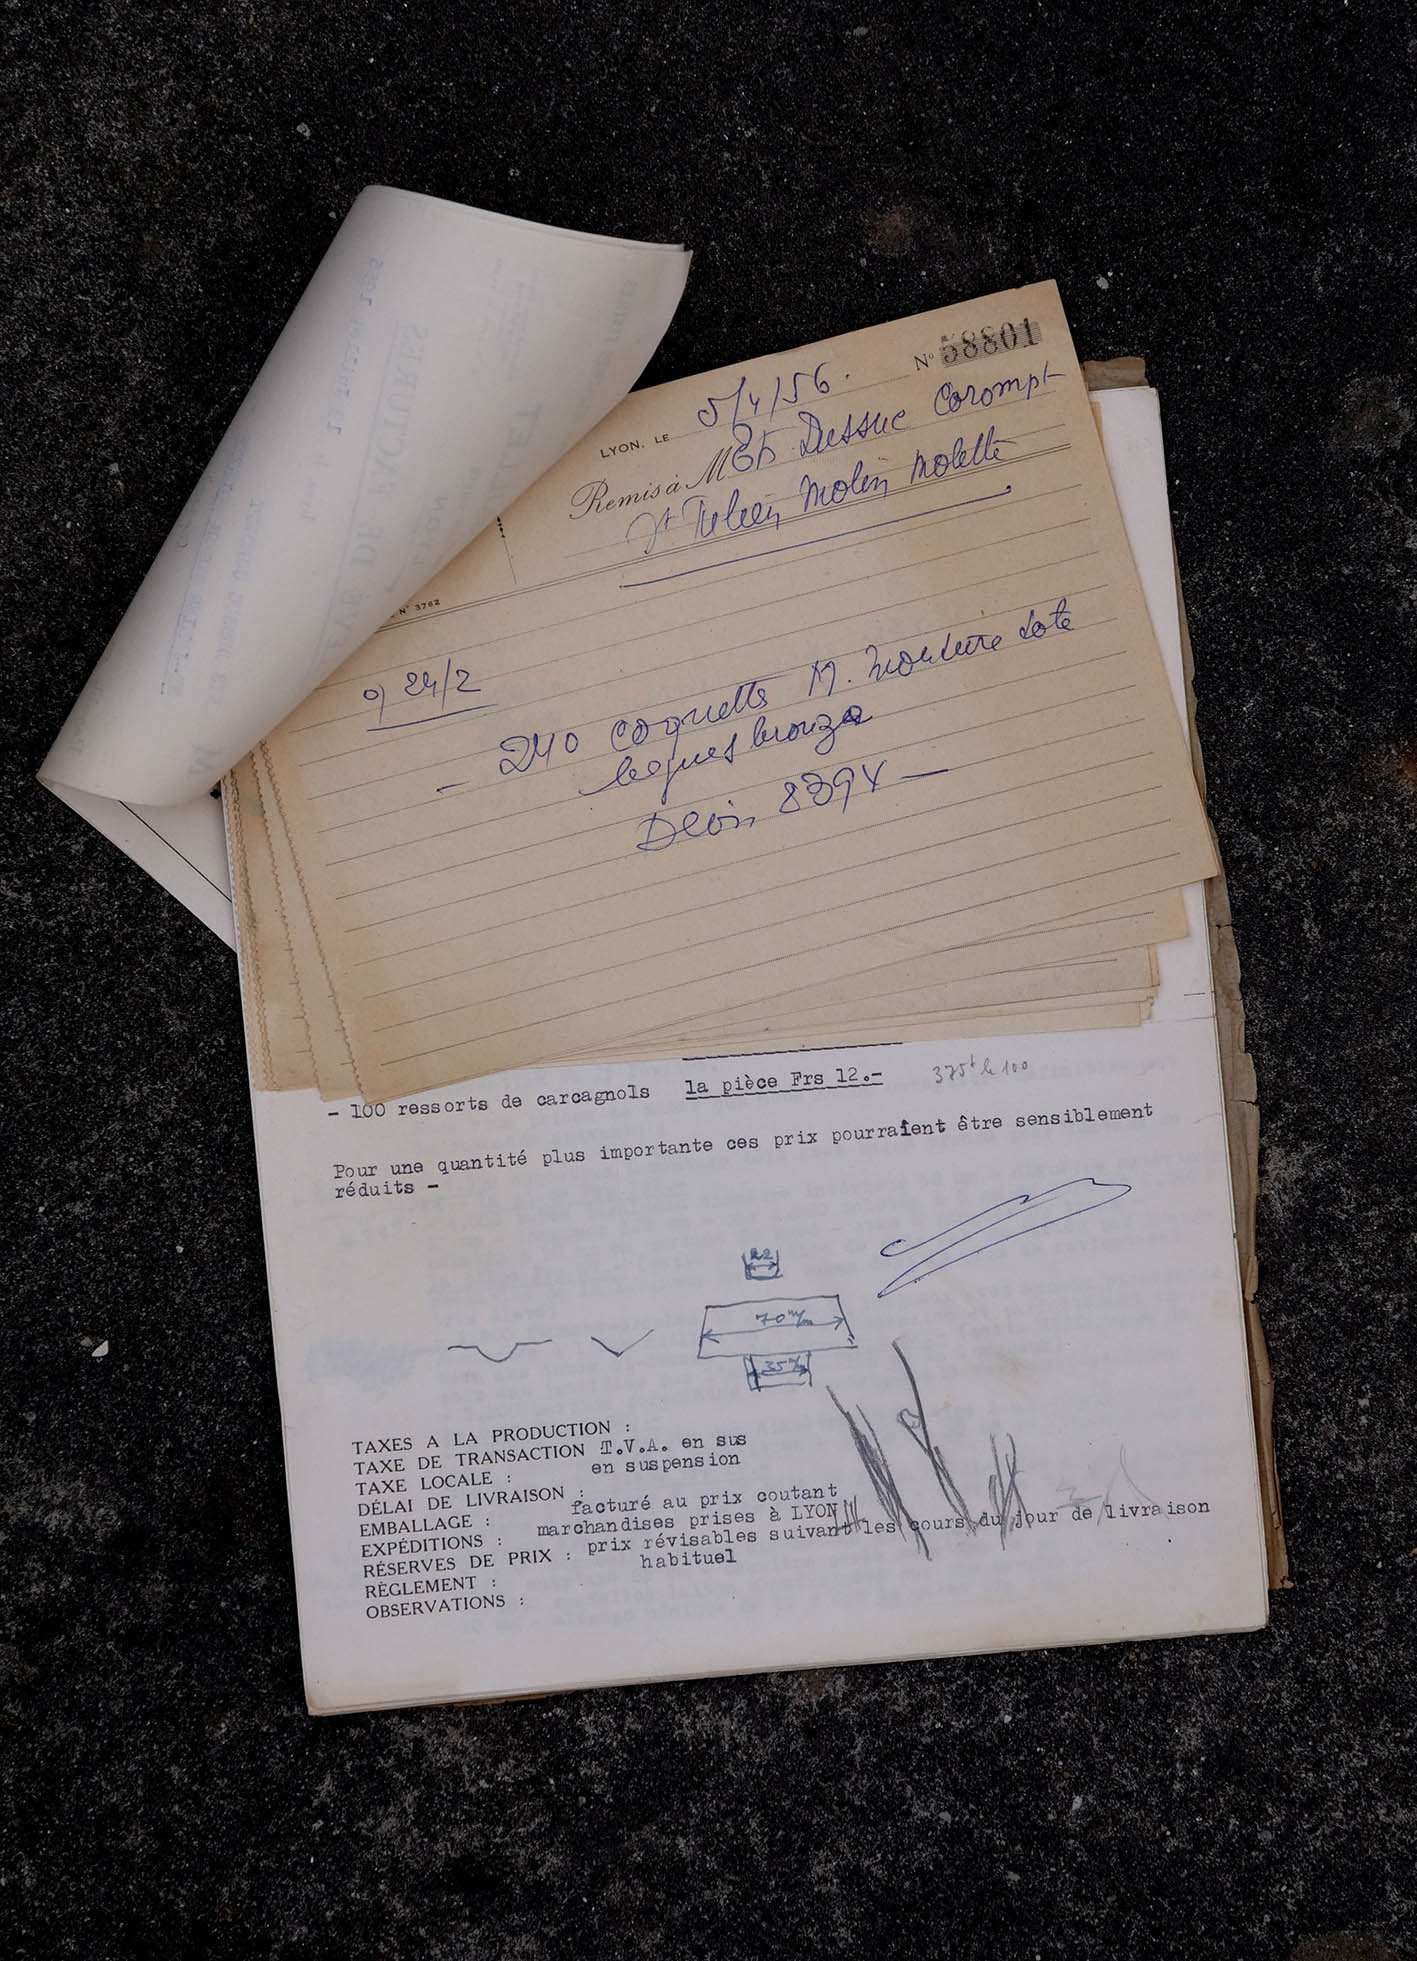 N° 58801
LYON, LE 5/4/56.
Remis à M Ets Dussuc Corompt
St Julien Molin Molette
N° 3762
24/2
- 240 coquetts M. monture tote
bagues bronze
8394 -
- 100 ressorts de carcagnols la pièce Frs 12.- 375 le 100
Pour une quantité plus importante ces prix pourraient être sensiblement
réduits -
22
70 m/m
35 m/m
TAXES A LA PRODUCTION :
TAXE DE TRANSACTION T.V.A. en sus
TAXE LOCALE : en suspension
DÉLAI DE LIVRAISON :
EMBALLAGE : facturé au prix coutant
EXPÉDITIONS : marchandises prises à LYON
RÉSERVES DE PRIX : prix révisables suivant les cours du jour de livraison
RÈGLEMENT : habituel
OBSERVATIONS :